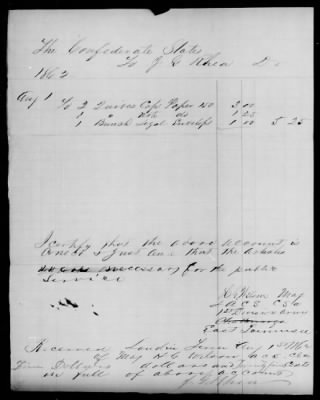 The Confederate States
To J G Rhea Dr
1862
Aug 1 To 2 Quires Cap Paper 150 3 00
1 " Note do 1 25
1 Bunch Legal Envelops 1 00 5 25
I certify that the above account is
correct & just and that the articles
were necessary for the public
service
H C Wilson Maj
A C S CSA
East Tennessee
Received Loudon Tenn Aug 1st 1862
of Maj H C Wilson ACS CSA
Five Dollars and
in full of above account
J G Rhea